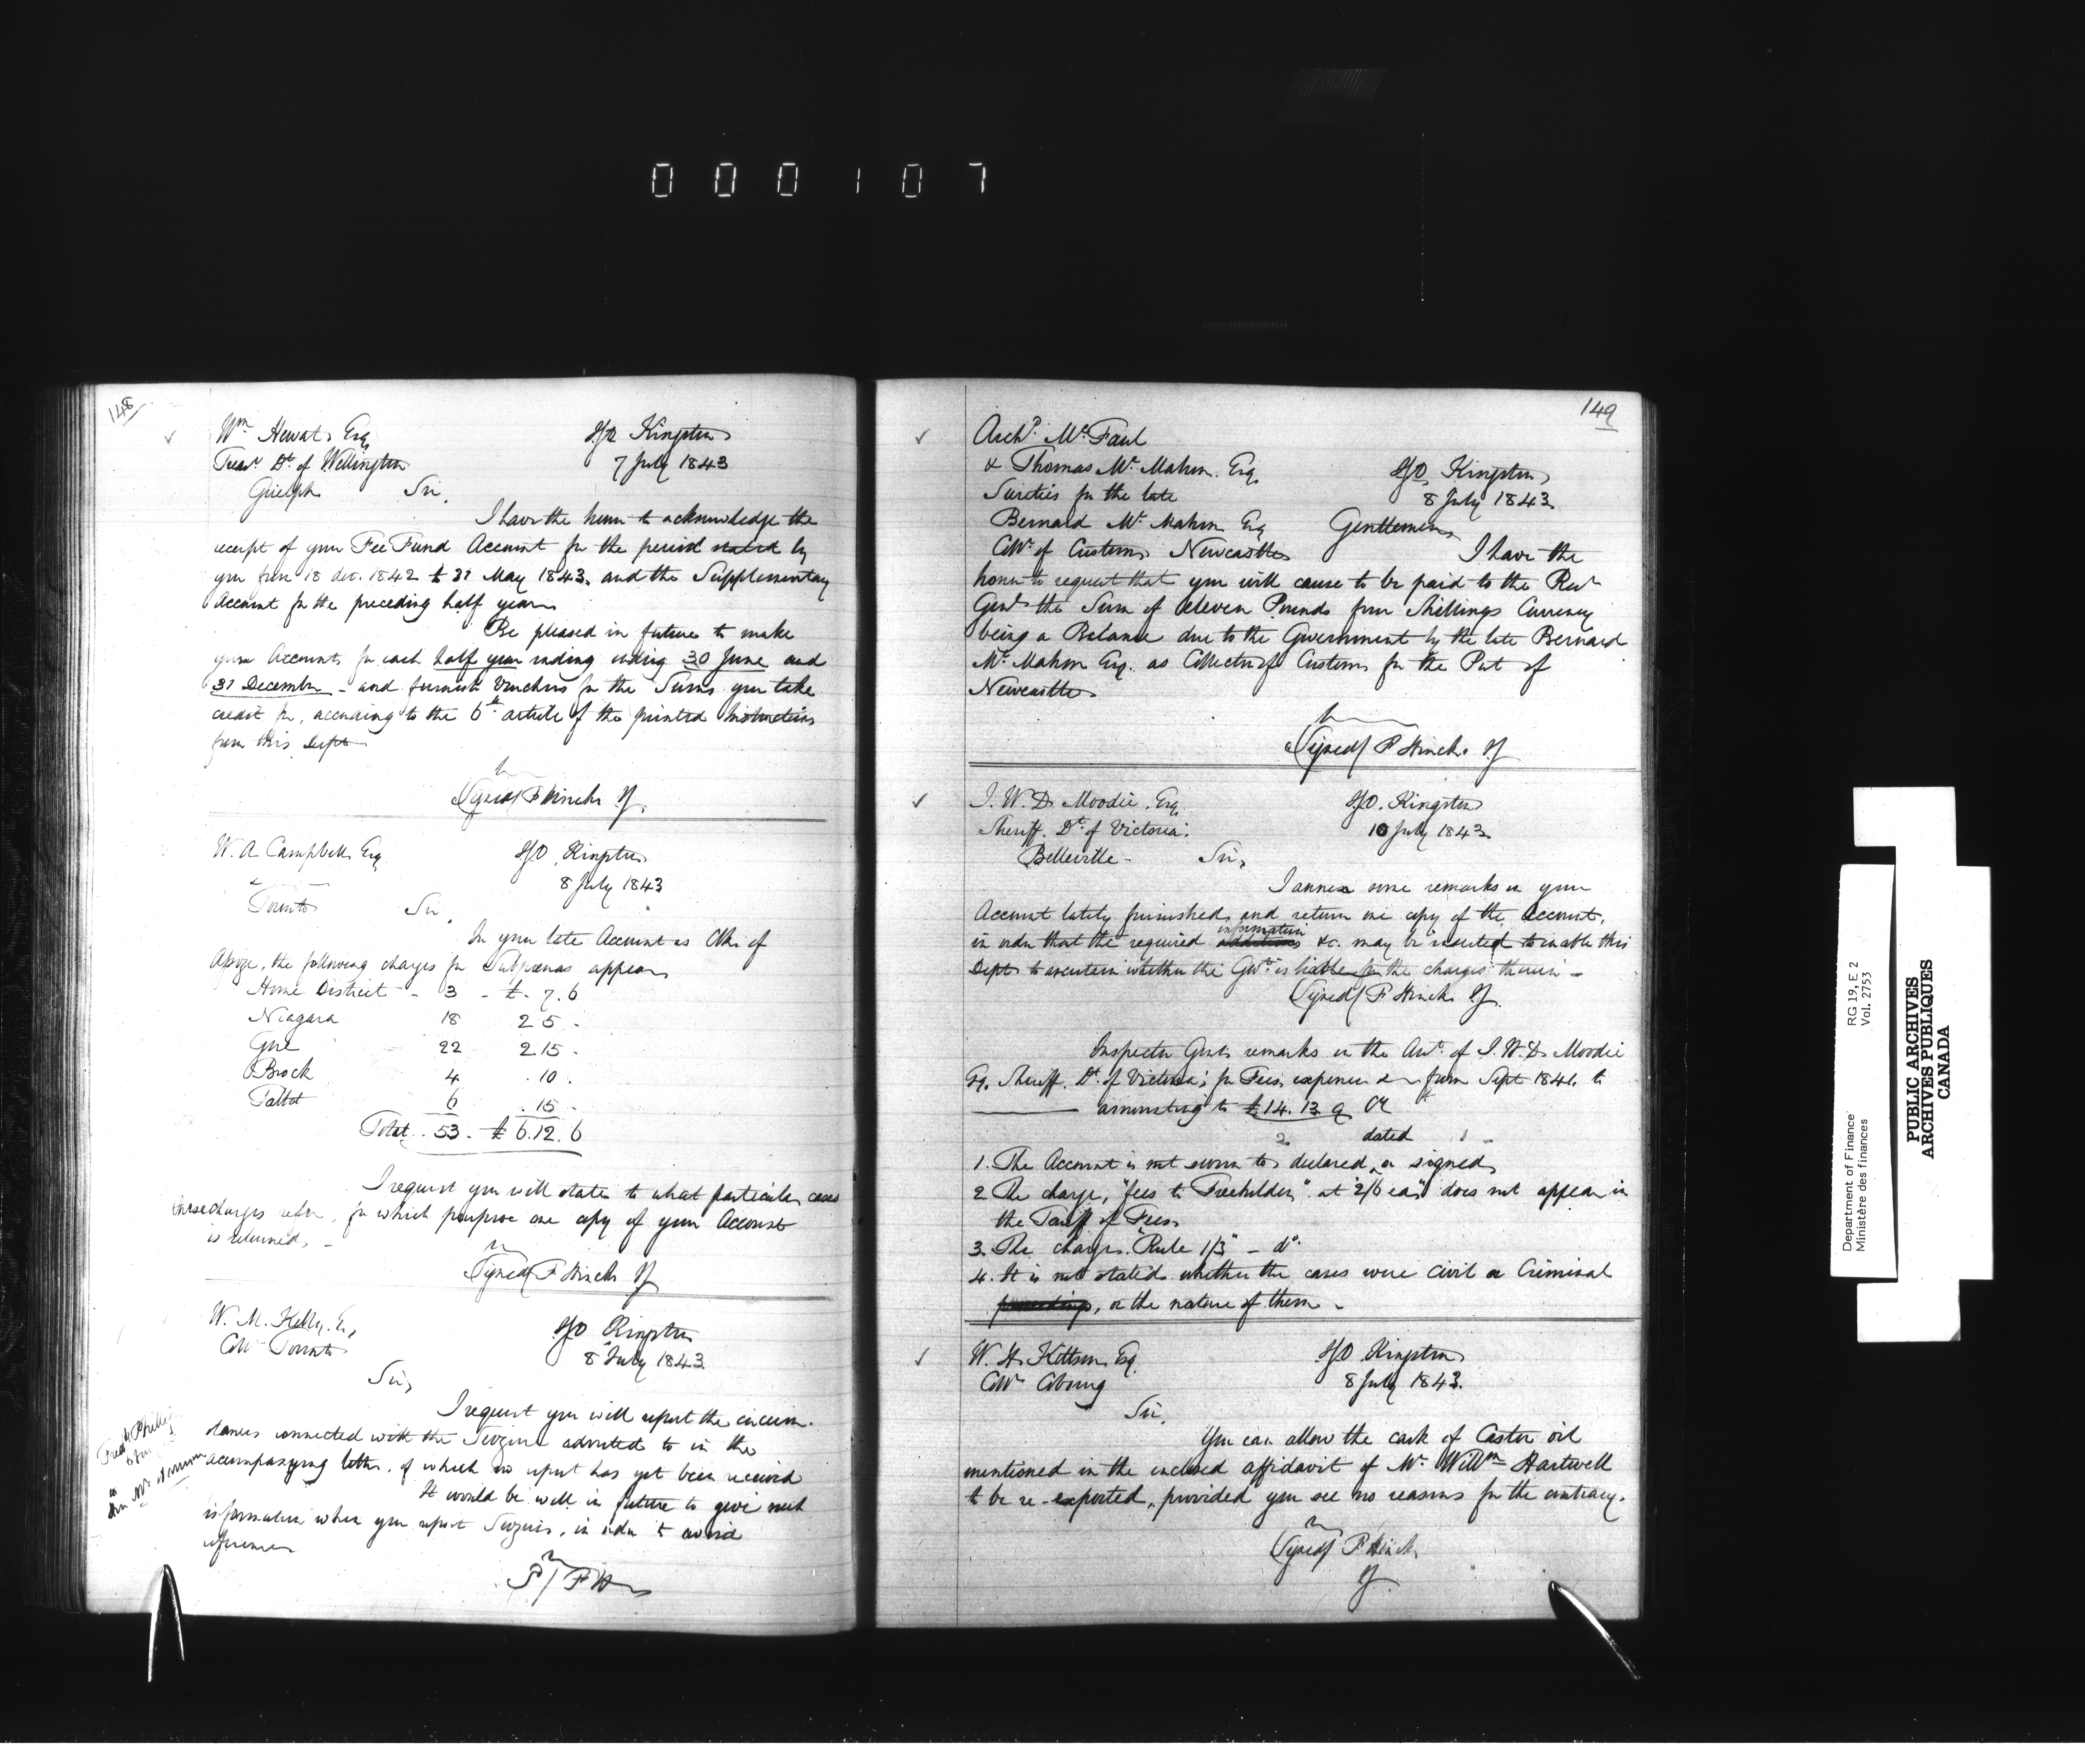 000107
148
Wm Hewat Esq
IGO Kingston
Treasr Dt. of Wellington
7 July 1843
Guelph
Sir,
I have the honor to acknowledge the
receipt of your Fee Fund Account for the period stated by
you from 18 dec. 1842 to 31 May 1843, and the Supplementary
Account for the preceding half year.
Be pleased in future to make
your Accounts for each half year ending ending 30 June and
31 December - and furnish Vouchers for the Sums you take
credit for, according to the 6th article of the printed Instructions
from this Dept
(Signed) F Hincks IG.
W. A Campbell Esq
IGO, Kingston
8 July 1843
Toronto
Sir,
In your late Account as Clk. of
Assize, the following charges for Subpoenas appear
Home District - 3 - £. 7. 6
Niagara 18 2 5 -
Gore 22 2.15 -
Brock 4 . 10 .
Talbot 6 . 15 -
Total . 53 - £ 6. 12. 6
I request you will state to what particular cases
these charges refer, for which purpose one copy of your Account
is returned, -
(Signed) F Hincks IG
W. M. Kelly, Esq
IGO Kingston
Collr Toronto
8 July 1843
Sir,
I request you will report the circum-
stances connected with the Seizure adverted to in the
accompanying letter, of which no report has yet been received
It would be well in future to give such
information when you report Seizures, in order to avoid
references
S/ F H
149
Archd. Mc Faul
& Thomas Mc Mahon. Esq.
IGO, Kingston,
Sureties for the late
8 July 1843.
Bernard Mc Mahon Esq
Gentlemen,
Collr. of Customs Newcastle
I have the
honor to request that you will cause to be paid to the Recr
Genl the Sum of Eleven Pounds four Shillings Currency
being a Balance due to the Government by the late Bernard
Mc Mahon Esq. as Collector of Customs for the Port of
Newcastle
(Signed) F Hincks. IG
J. W. D. Moodie. Esq.
IGO. Kingston
Sheriff. Dt. of Victoria.
10 July 1843
Belleville -
Sir,
I annex some remarks on your
Account lately furnished, and return one copy of the account,
in order that the required information &c. may be inserted to enable this
Dept to ascertain whether the Govt. is liable for the charges therein -
(Signed) F Hincks IG.
Inspector Genl's remarks on the Acct. of J. W. D. Moodie
Esq. Sheriff. Dt. of Victoria; for Fees, expenses &c from Sept 1841. to
amounting to £14. 13. 9 Cy
dated
1. The Account is not sworn to, declared, or signed,
2 The charge, "fees to Freeholders," at "2/6 ea" does not appear in
the Tariff of Fees.
3. The charges. "Rule 1/3" - do.
4. It is not stated whether the cases were Civil or Criminal
proceedings, or the nature of them -
W. H. Kittson, Esq.
IGO Kingston
Collr Cobourg
8 July 1843.
Sir,
You can allow the cask of Castor oil
mentioned in the inclosed affidavit of Mr. Willm Hartwell
to be re-exported, provided you see no reasons for the contrary.
(Signed) F. Hincks
IG.
Department of Finance
Ministère des finances
RG 19, E 2
Vol. 2753
PUBLIC ARCHIVES
ARCHIVES PUBLIQUES
CANADA